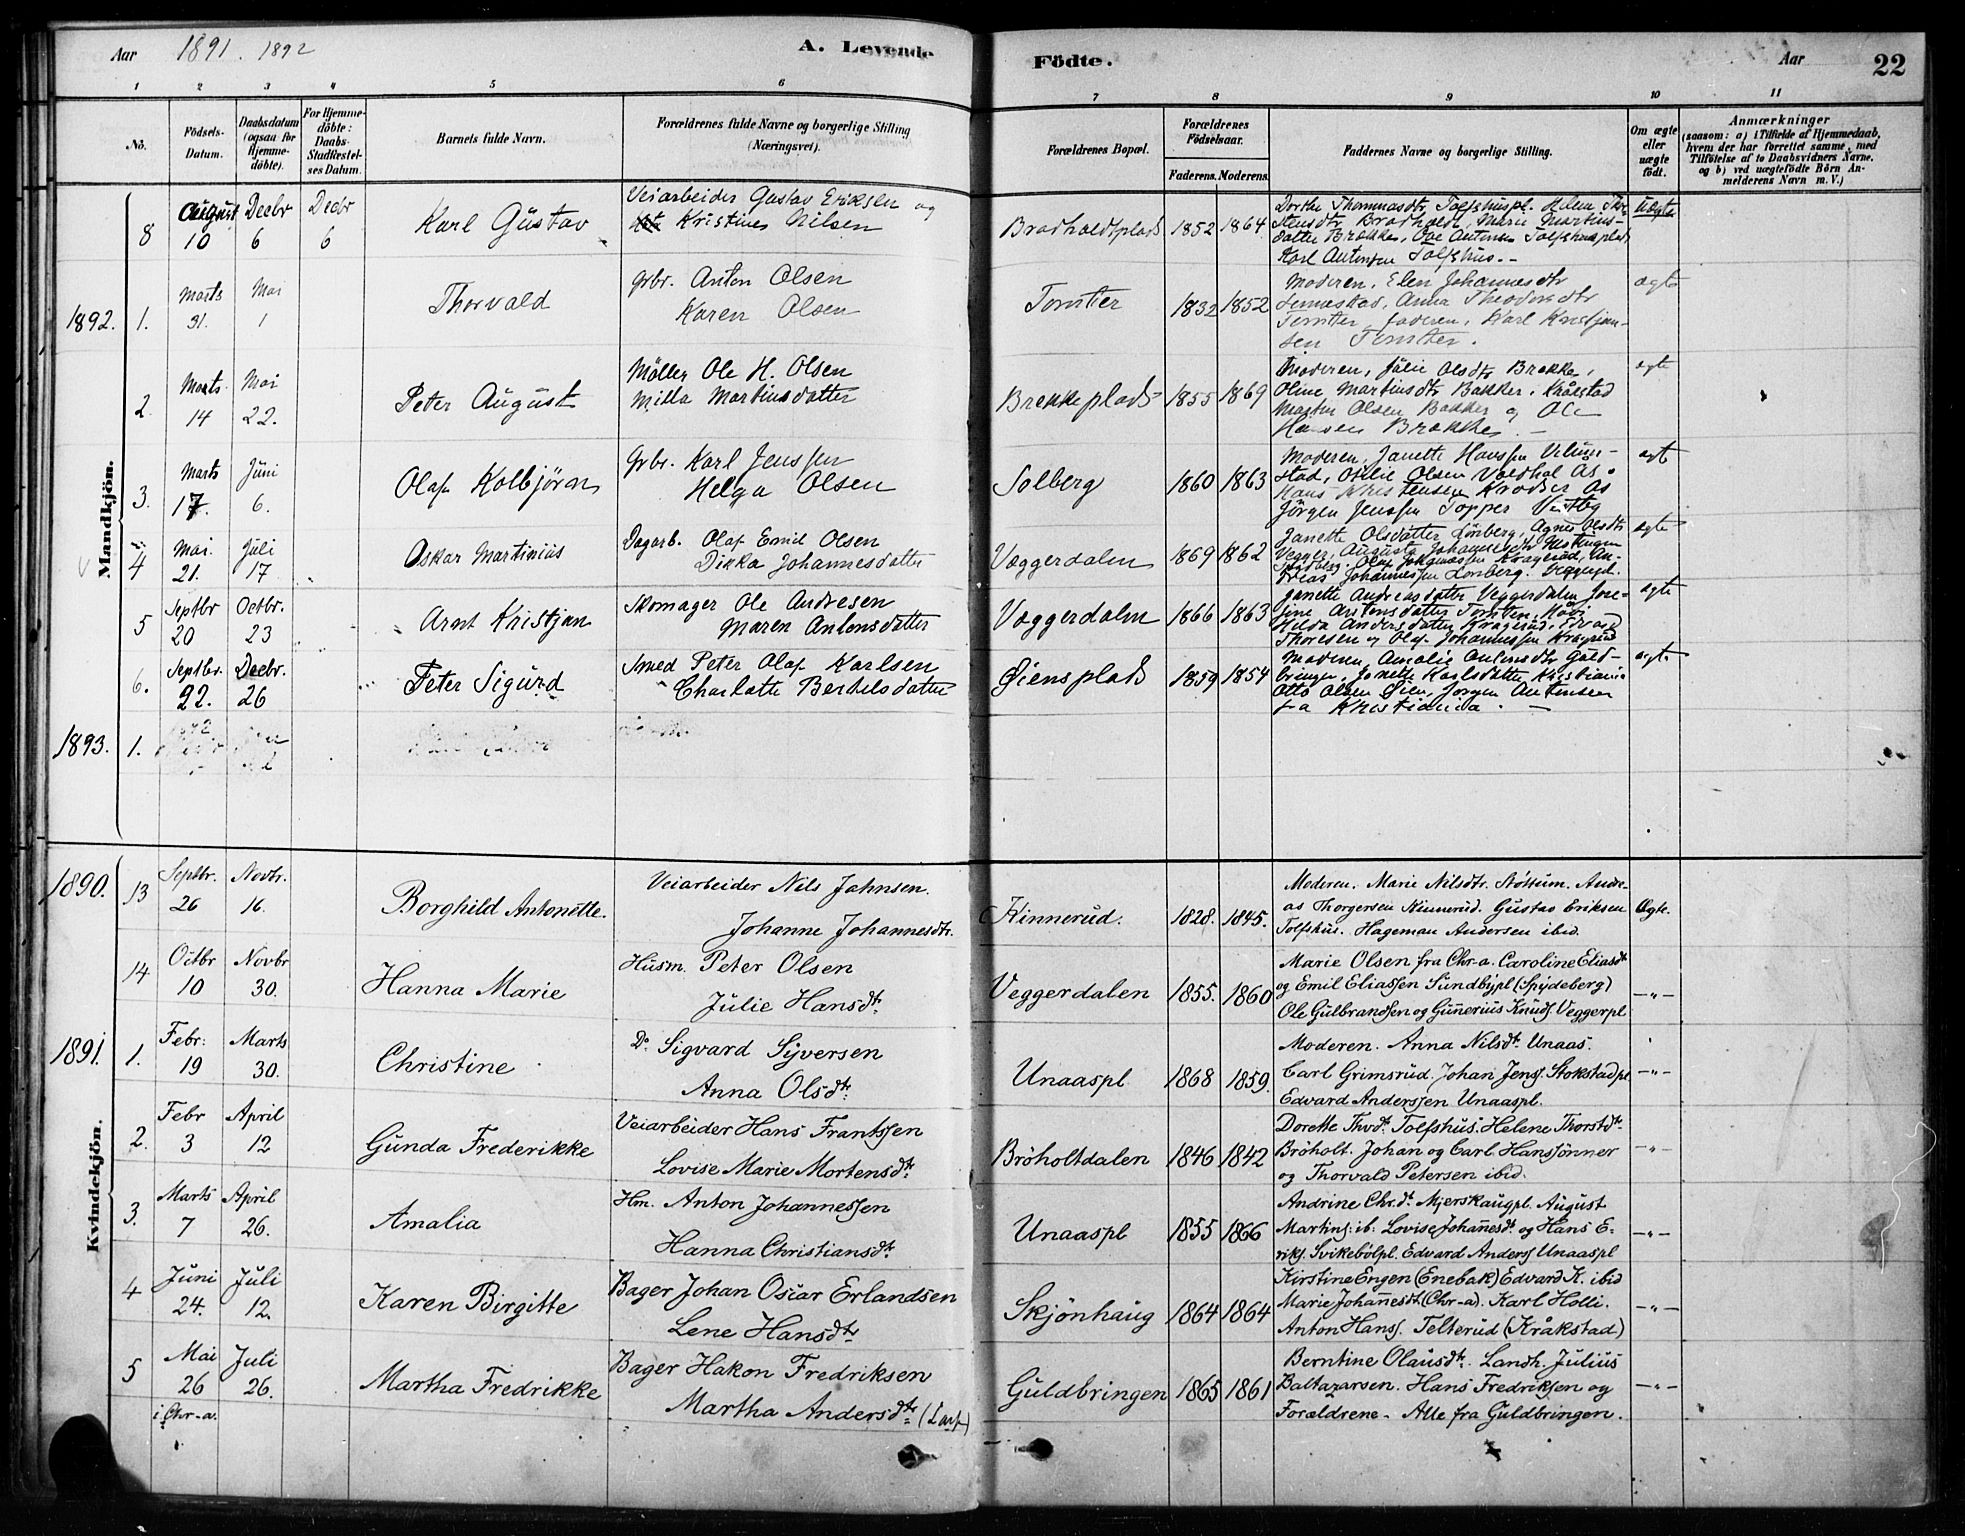 Aar 1891. 1892
A. Levende Födte.
Aar
22
1 2 3 4 5 6 7 8 9 10 11
No.
Födsels-Datum.
Daabsdatum (ogsaa for Hjemme-döbte).
For Hjemme-döbte: Daabs-Stadfæstel-ses Datum.
Barnets fulde Navn.
Forældrenes fulde Navne og borgerlige Stilling (Næringsvei).
Forældrenes Bopæl.
Forældrenes Födselsaar.
Faderens. Moderens.
Faddernes Navne og borgerlige Stilling.
Om ægte eller uægte født.
Anmærkninger
(saasom: a) i Tilfælde af Hjemmedaab,
hvem der har forrettet samme, med
Tilföielse af to Daabsvidners Navne.
og b) ved uægtefödte Börn An-
melderens Navn m. V.)
Mandkjön.
8 August 10 Decbr 6 Decbr 6
Karl Gustav
Veiarbeider Gustav Eriksen og
Kristines Nilsen
Bradholdtplads 1852 1864
Dorthe Thommasdtr Tolfshuspl. Helen Thr-
Stensdtr Bradholdt, Marie Martins-
datter Brække, Ove Antonsen Tolfshusplads
Karl Antonsen Tolfshus.-
Uægte
1892. 1. Marts 31. Mai 1
Thorvald
Grbr. Anton Olsen
Karen Olsen
Tomter 1832 1852
Moderen, Elen Johannesdtr
Anna Theodorsdtr
Tomter faderen, Karl Kristjan-
sen Tomter.
ægte
2 Marts 14 Mai 22.
Peter August
Möller Ole H. Olsen
Milla Martinsdatter
Brekkeplads 1855 1869
Moderen, Julie Olsdtr Brekke,
Oline Martinsdtr Bakker, Kråkstad
Martin Olsen Bakker og Ole
Hansen Brække. -
ægte
3. Marts 17. Juni 6.
Olaf Kolbjörn
Grbr. Karl Jenssen
Helga Olsen
Solberg 1860 1863
Moderen, Janette Hanssen
stad, Otilie Olsen As.
Hans Kristensen As
Jörgen Jenssen Topper Vestby
ægt
4 Mai. 21. Juli 17
Oskar Martinius
Dagarb. Olaf Emil Olsen
Dikka Johannesdatter
Væggerdalen 1869 1862
Janette Olsdatter Lönberg, Agnes Olsdtr
Vegger, Augusta Johannesdtr
Olaf Johannessen Kragerud, An-
dreas Johannessen Lönberg.
ægte
5 Septbr 20 Octbr. 23
Arnt Kristjan
Skomager Ole Andresen
Maren Antonsdatter
Væggerdalen 1866 1863
Janette Andreasdatter Veggerdalen Jose-
fine Antonsdatter Tomten,
Hilda Andersdatter Kragerud, Edvard
Thoresen og Olaf Johannessen Kragerud
ægte
6. Septbr. 22. Decbr. 26
Peter Sigurd
Smed Peter Olaf Karlsen
Charlotte Bertelsdatter
Øiensplads 1859 1854
Moderen, Amalie Antonsdtr Guld-
bringen, Janette Karlsdatter Kristiania
Otto Olsen Øien, Jorgen Antonsen
fra Kristiania. -
ægte
1893. 1.
Kvindekjön.
1890. 13 Septbr. 26 Novbr. 16.
Borghild Antonette.
Veiarbeider Nils Johnsen.
Johanne Johannesdtr.
Kinnerud. 1828. 1845.
Moderen. Marie Nilsdtr. Støttum. Andre-
as Thorgersen Kinnerud. Gustav Eriksen
Tolfshus. Hageman Andersen ibid.
Ægte.
14 Octbr 10 Novbr 30.
Hanna Marie
Husm. Peter Olsen
Julie Hansdtr.
Veggerdalen 1855. 1860
Marie Olsen fra Chr-a. Caroline Eliasdtr
og Emil Eliassen Sundbypl (Spydeberg)
Ole Gulbrandsen og Gunerius Knuds. Veggerpl
-"-
1891. 1. Febr: 19 Marts 30.
Christine
Do Sigvard Syversen
Anna Olsdtr.
Unaaspl 1868 1859.
Moderen. Anna Nilsdtr. Unaas.
Carl Grimsrud. Johan Jens. Stokstadpl
Edvard Anderssen Unaaspl.
-"-
2. Febr 3 April 12
Gunda Frederikke
Veiarbeider Hans Frantssen
Lovise Marie Mortensdtr
Bröholtdalen 1846 1842
Dorette Thvdtr. Tolfshus. Helene Thorstdtr.
Bröholt. Johan og Carl Hanssönner
og Thorvald Petersen ibid.
-"-
3. Marts 7 April 26.
Amalia
Hm. Anton Johannessen
Hanna Christiansdtr.
Unaaspl 1855 1866
Andrine Chr.dtr. Mjerskaugpl. August
Martins: ib: Lovise Johannesdtr og Hans E-
riks. Svikebölpl. Edvard Anders Unaaspl
-"-
4 Juni 24. Juli 12.
Karen Birgitte
Bager Johan Oscar Erlandsen
Lene Hansdtr
Skjönhaug 1864 1864
Kirstine Engen (Enebak) Edvard K. ibid
Marie Johannesdtr. (Chr-a). Karl Holli.
Anton Hans. Telterud (Kråkstad)
-"-
5 Mai 26 i Chr-a. Juli 26.
Martha Fredrikke
Bager Hakon Fredriksen
Martha Andersdtr.
Guldbringen 1865 1861
Berntine Olausdtr. Landh. Julius
Baltazarsen. Hans Fredriksen og
Forældrene - Alle fra Guldbringen.
-"-